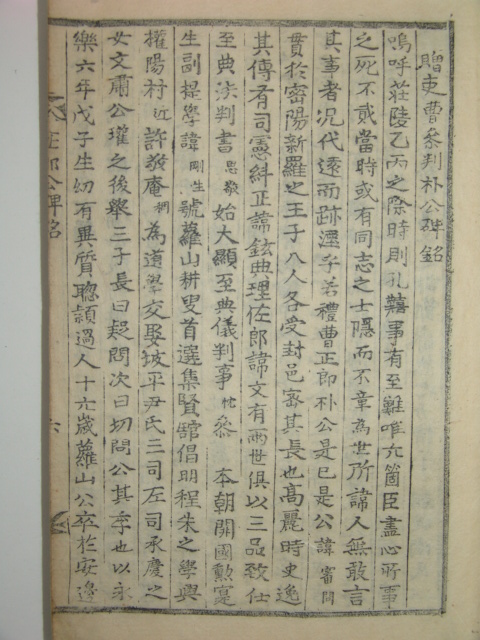 贈吏曹參判朴公碑銘
嗚呼莊陵乙丙之除時則孔囏事有至難唯六箇臣盡心所事
之死不貳當時或有同志之士隱而不章為世所諱人無敢言
其事者况代遠而跡湮乎若禮曹正郎朴公是已是公諱審問
貫於密陽新羅之王子八人各受封邑密其長也高麗時史逸
其傳有司憲糾正諱鉉典理佐郎諱文有兩世俱以三品致仕
至典法判書思敬始大顯至典儀判事忱叅 本朝開國勲寔
生副提學諱剛生號蘿山耕叟首選集賢舘倡明程朱之學與
權陽村近許敬庵稠為道學交娶坡平尹氏三司左司承慶之
女文肅公瓘之後舉三子長曰起問次曰切問公其季也以永
樂六年戊子生幼有異質聰頴過人十六歲蘿山公卒於安邊
公碑名
六